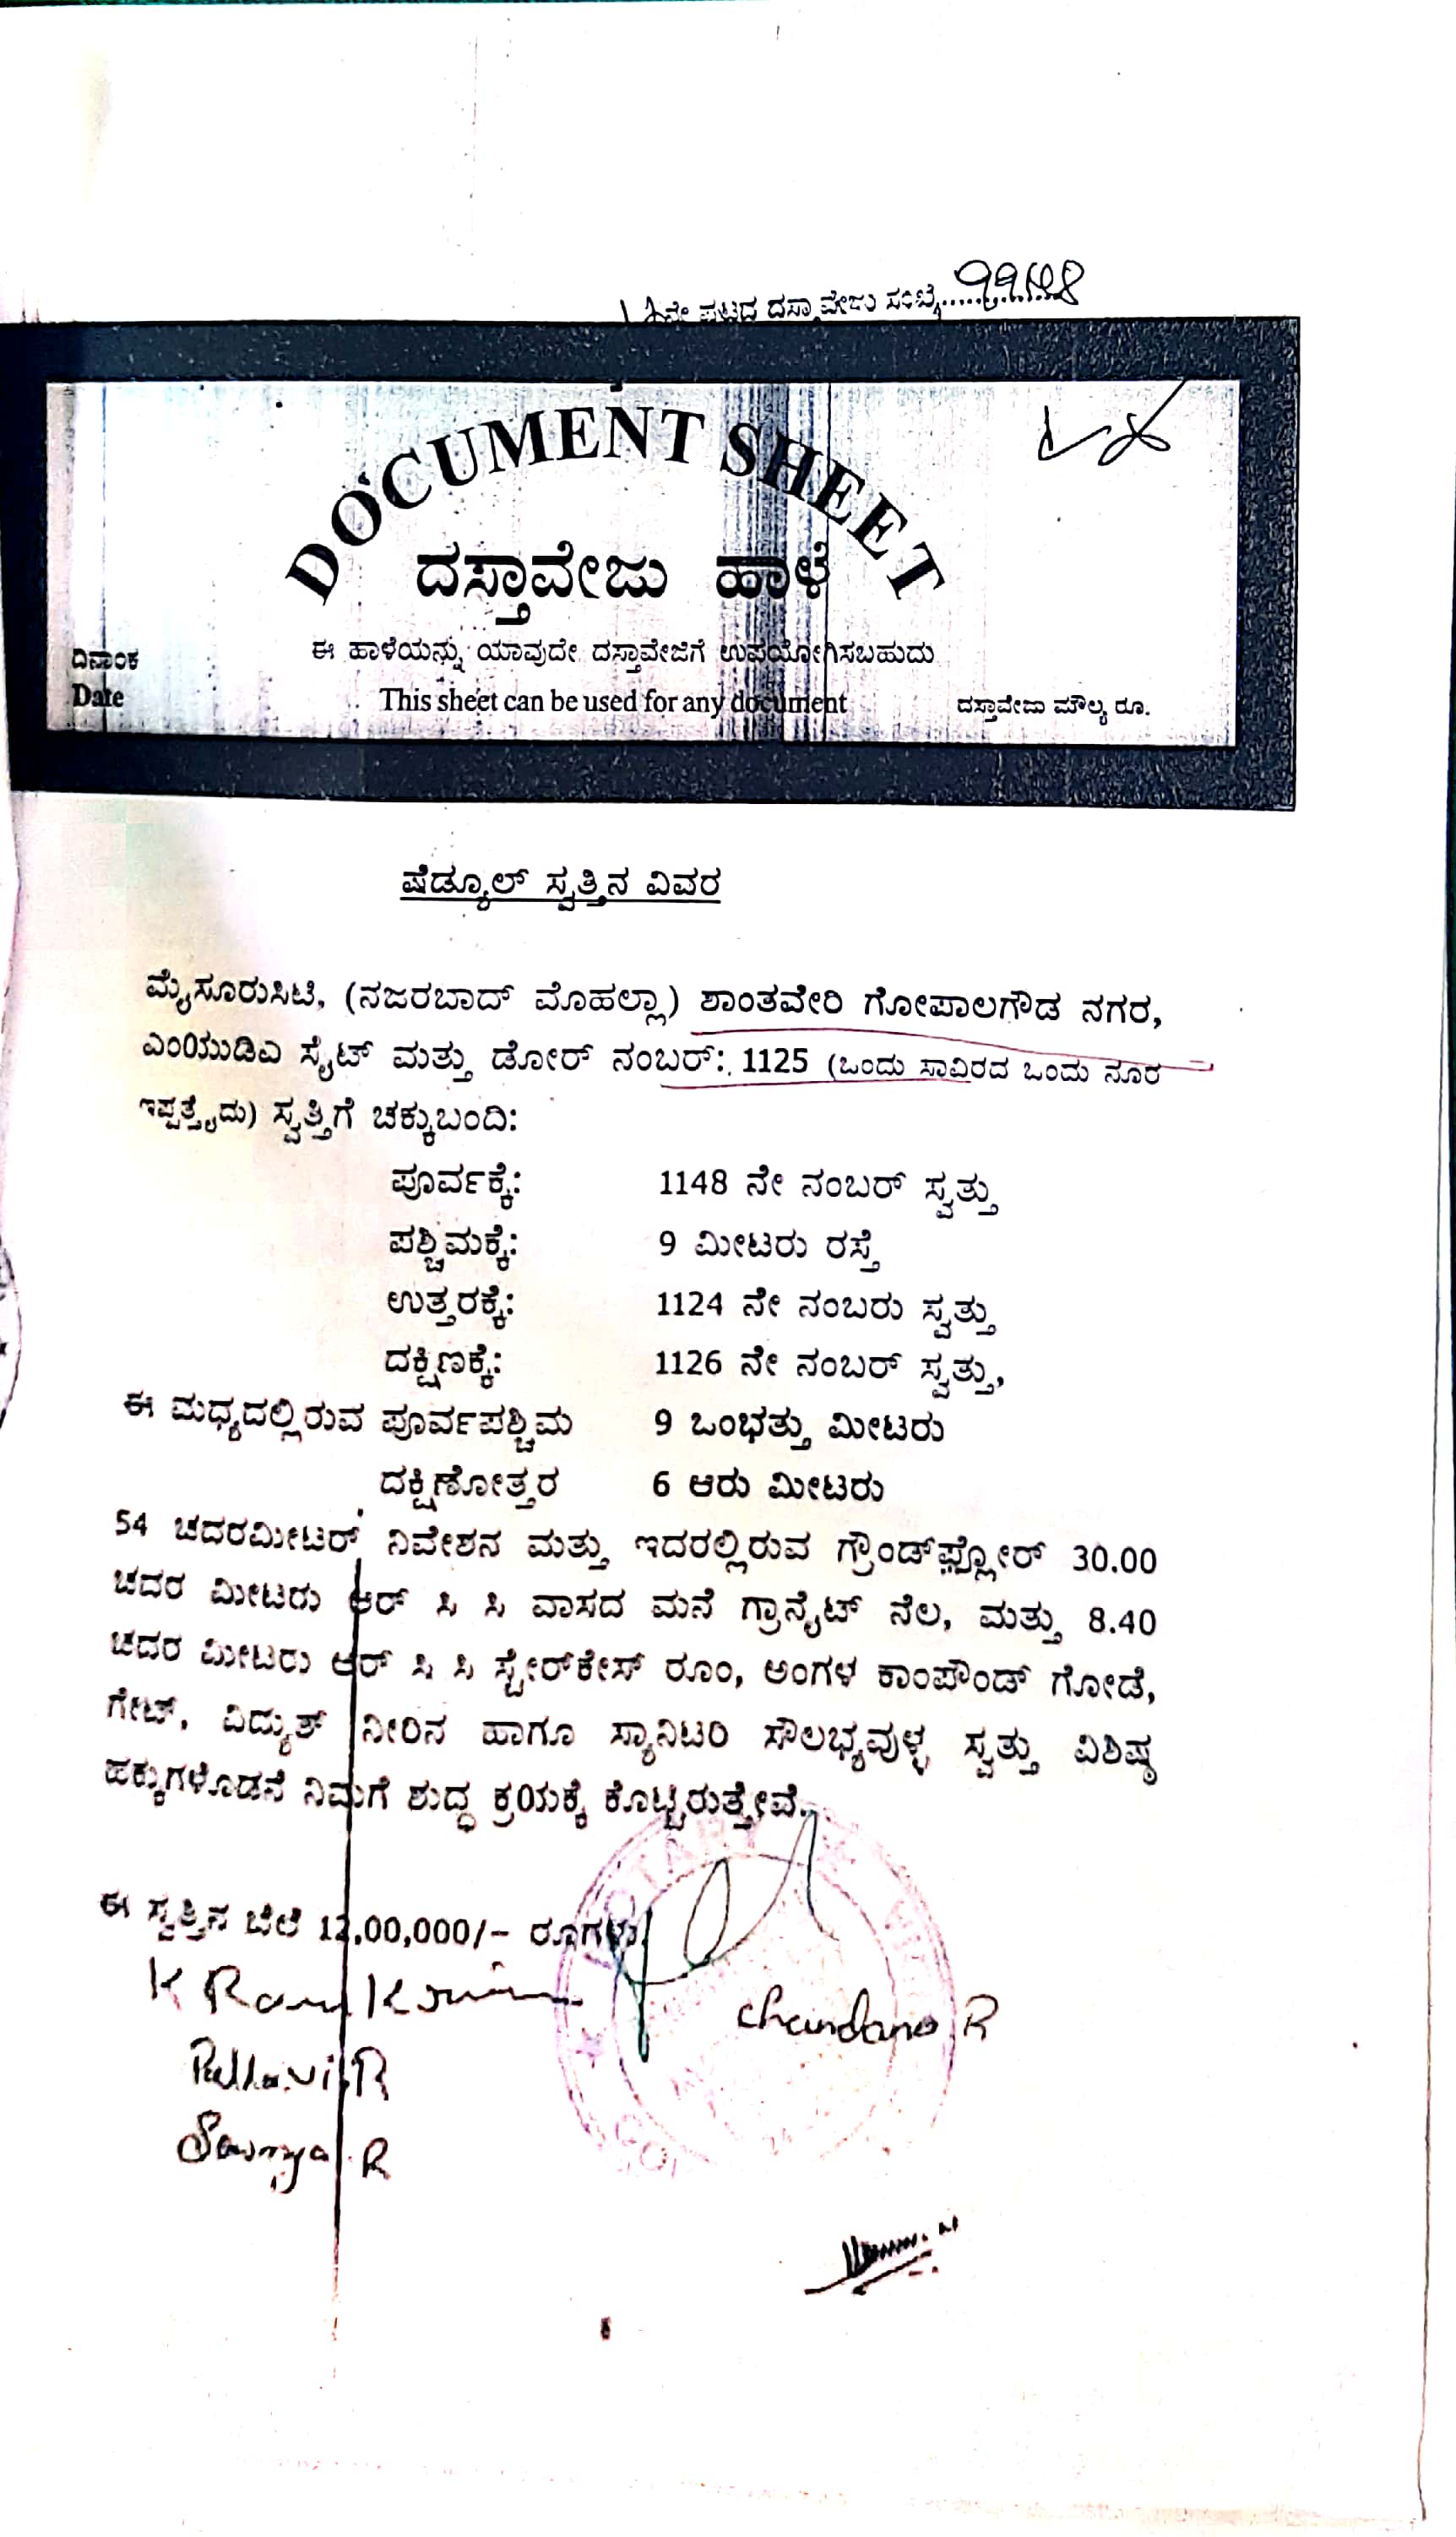 ನೇ ಪುಟದ ದಸ್ತಾವೇಜು ಸಂಖ್ಯೆ
DOCUMENT SHEET
ದಸ್ತಾವೇಜು ಹಾಳೆ
ದಿನಾಂಕ ಈ ಹಾಳೆಯನ್ನು ಯಾವುದೇ ದಸ್ತಾವೇಜಿಗೆ ಉಪಯೋಗಿಸಬಹುದು
Date This sheet can be used for any document ದಸ್ತಾವೇಜು ಮೌಲ್ಯ ರೂ.
ಷೆಡ್ಯೂಲ್ ಸ್ವತ್ತಿನ ವಿವರ
ಮೈಸೂರುಸಿಟಿ, (ನಜರಬಾದ್ ಮೊಹಲ್ಲಾ) ಶಾಂತವೇರಿ ಗೋಪಾಲಗೌಡ ನಗರ,
ಎಂಯುಡಿಎ ಸೈಟ್ ಮತ್ತು ಡೋರ್ ನಂಬರ್: 1125 (ಒಂದು ಸಾವಿರದ ಒಂದು ನೂರ
ಇಪ್ಪತ್ತೈದು) ಸ್ವತ್ತಿಗೆ ಚಕ್ಕುಬಂದಿ:
ಪೂರ್ವಕ್ಕೆ: 1148 ನೇ ನಂಬರ್ ಸ್ವತ್ತು
ಪಶ್ಚಿಮಕ್ಕೆ: 9 ಮೀಟರು ರಸ್ತೆ
ಉತ್ತರಕ್ಕೆ: 1124 ನೇ ನಂಬರು ಸ್ವತ್ತು
ದಕ್ಷಿಣಕ್ಕೆ: 1126 ನೇ ನಂಬರ್ ಸ್ವತ್ತು,
ಈ ಮಧ್ಯದಲ್ಲಿರುವ ಪೂರ್ವಪಶ್ಚಿಮ 9 ಒಂಭತ್ತು ಮೀಟರು
ದಕ್ಷಿಣೋತ್ತರ 6 ಆರು ಮೀಟರು
54 ಚದರಮೀಟರ್ ನಿವೇಶನ ಮತ್ತು ಇದರಲ್ಲಿರುವ ಗ್ರೌಂಡ್‌ಫ್ಲೋರ್ 30.00
ಚದರ ಮೀಟರು ಆರ್ ಸಿ ಸಿ ವಾಸದ ಮನೆ ಗ್ರಾನೈಟ್ ನೆಲ, ಮತ್ತು 8.40
ಚದರ ಮೀಟರು ಆರ್ ಸಿ ಸಿ ಸ್ಟೇರ್‌ಕೇಸ್ ರೂಂ, ಅಂಗಳ ಕಾಂಪೌಂಡ್ ಗೋಡೆ,
ಗೇಟ್, ವಿದ್ಯುತ್ ನೀರಿನ ಹಾಗೂ ಸ್ಯಾನಿಟರಿ ಸೌಲಭ್ಯವುಳ್ಳ ಸ್ವತ್ತು ವಿಶಿಷ್ಠ
ಹಕ್ಕುಗಳೊಡನೆ ನಿಮಗೆ ಶುದ್ಧ ಕ್ರಯಕ್ಕೆ ಕೊಟ್ಟಿರುತ್ತೇವೆ.
ಈ ಸ್ವತ್ತಿನ ಬೆಲೆ 12,00,000/- ರೂಗಳು
Chandana R
Pallavi.R
Sowmya.R